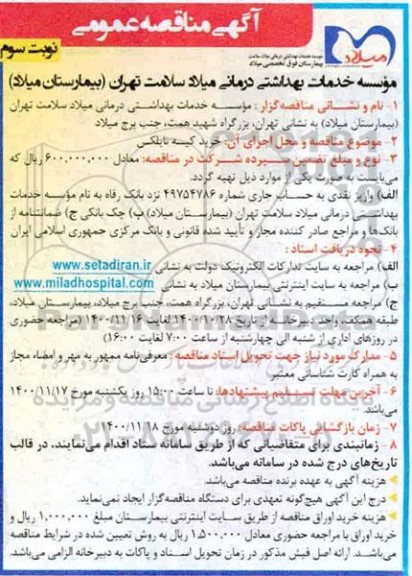 آگهی مناقصه عمومی
نوبت سوم
میلاد
موسسه خدمات بهداشتی درمانی میلاد سلامت
بیمارستان فوق تخصصی میلاد
مؤسسه خدمات بهداشتی درمانی میلاد سلامت تهران (بیمارستان میلاد)
۱- نام و نشانی مناقصه‌گزار: مؤسسه خدمات بهداشتی درمانی میلاد سلامت تهران
(بیمارستان میلاد) به نشانی تهران، بزرگراه شهید همت، جنب برج میلاد
۲- موضوع مناقصه و محل اجرای آن: خرید کیسه تایلکس
۳- نوع و مبلغ تضمین سپرده شرکت در مناقصه: معادل ۶۰۰,۰۰۰,۰۰۰ ریال که
می‌بایست به صورت یکی از موارد ذیل تهیه گردد.
الف) واریز نقدی به حساب جاری شماره ۴۹۷۵۴۷۸۶ نزد بانک رفاه به نام مؤسسه خدمات
بهداشتی درمانی میلاد سلامت تهران (بیمارستان میلاد) ب) چک بانکی ج) ضمانتنامه از
بانک‌ها و مراجع صادر کننده مجاز و تأیید شده قانونی و بانک مرکزی جمهوری اسلامی ایران
۴- نحوه دریافت اسناد:
الف) مراجعه به سایت تدارکات الکترونیک دولت به نشانی www.setadiran.ir
ب) مراجعه به سایت اینترنتی بیمارستان میلاد به نشانی www.miladhospital.com
ج) مراجعه مستقیم به نشانی تهران، بزرگراه همت، جنب برج میلاد، بیمارستان میلاد،
طبقه همکف، واحد دبیرخانه از تاریخ ۱۴۰۰/۱۰/۲۸ لغایت ۱۴۰۰/۱۱/۱۶ (مراجعه حضوری
در روزهای اداری از شنبه الی چهارشنبه از ساعت ۷:۰۰ لغایت ۱۶:۰۰)
۵- مدارک مورد نیاز جهت تحویل اسناد مناقصه: معرفی‌نامه ممهور به مهر و امضاء مجاز
به همراه کارت شناسائی معتبر
۶- آخرین مهلت تسلیم پیشنهادها: تا ساعت ۱۵:۰۰ روز یکشنبه مورخ ۱۴۰۰/۱۱/۱۷
می‌باشد.
۷- زمان بازگشائی پاکات مناقصه: روز دوشنبه مورخ ۱۴۰۰/۱۱/۱۸
۸- زمانبندی برای متقاضیانی که از طریق سامانه ستاد اقدام می‌نمایند، در قالب
تاریخ‌های درج شده در سامانه می‌باشد.
هزینه آگهی به عهده برنده مناقصه می‌باشد.
درج این آگهی هیچ‌گونه تعهدی برای دستگاه مناقصه‌گزار ایجاد نمی‌نماید.
هزینه خرید اوراق مناقصه از طریق سایت اینترنتی بیمارستان مبلغ ۱,۰۰۰,۰۰۰ ریال و
خرید اوراق با مراجعه حضوری معادل ۱,۵۰۰,۰۰۰ ریال به روش تعیین شده در شرایط مناقصه
می‌باشد. ارائه اصل فیش مذکور در زمان تحویل اسناد و پاکات به دبیرخانه الزامی می‌باشد.